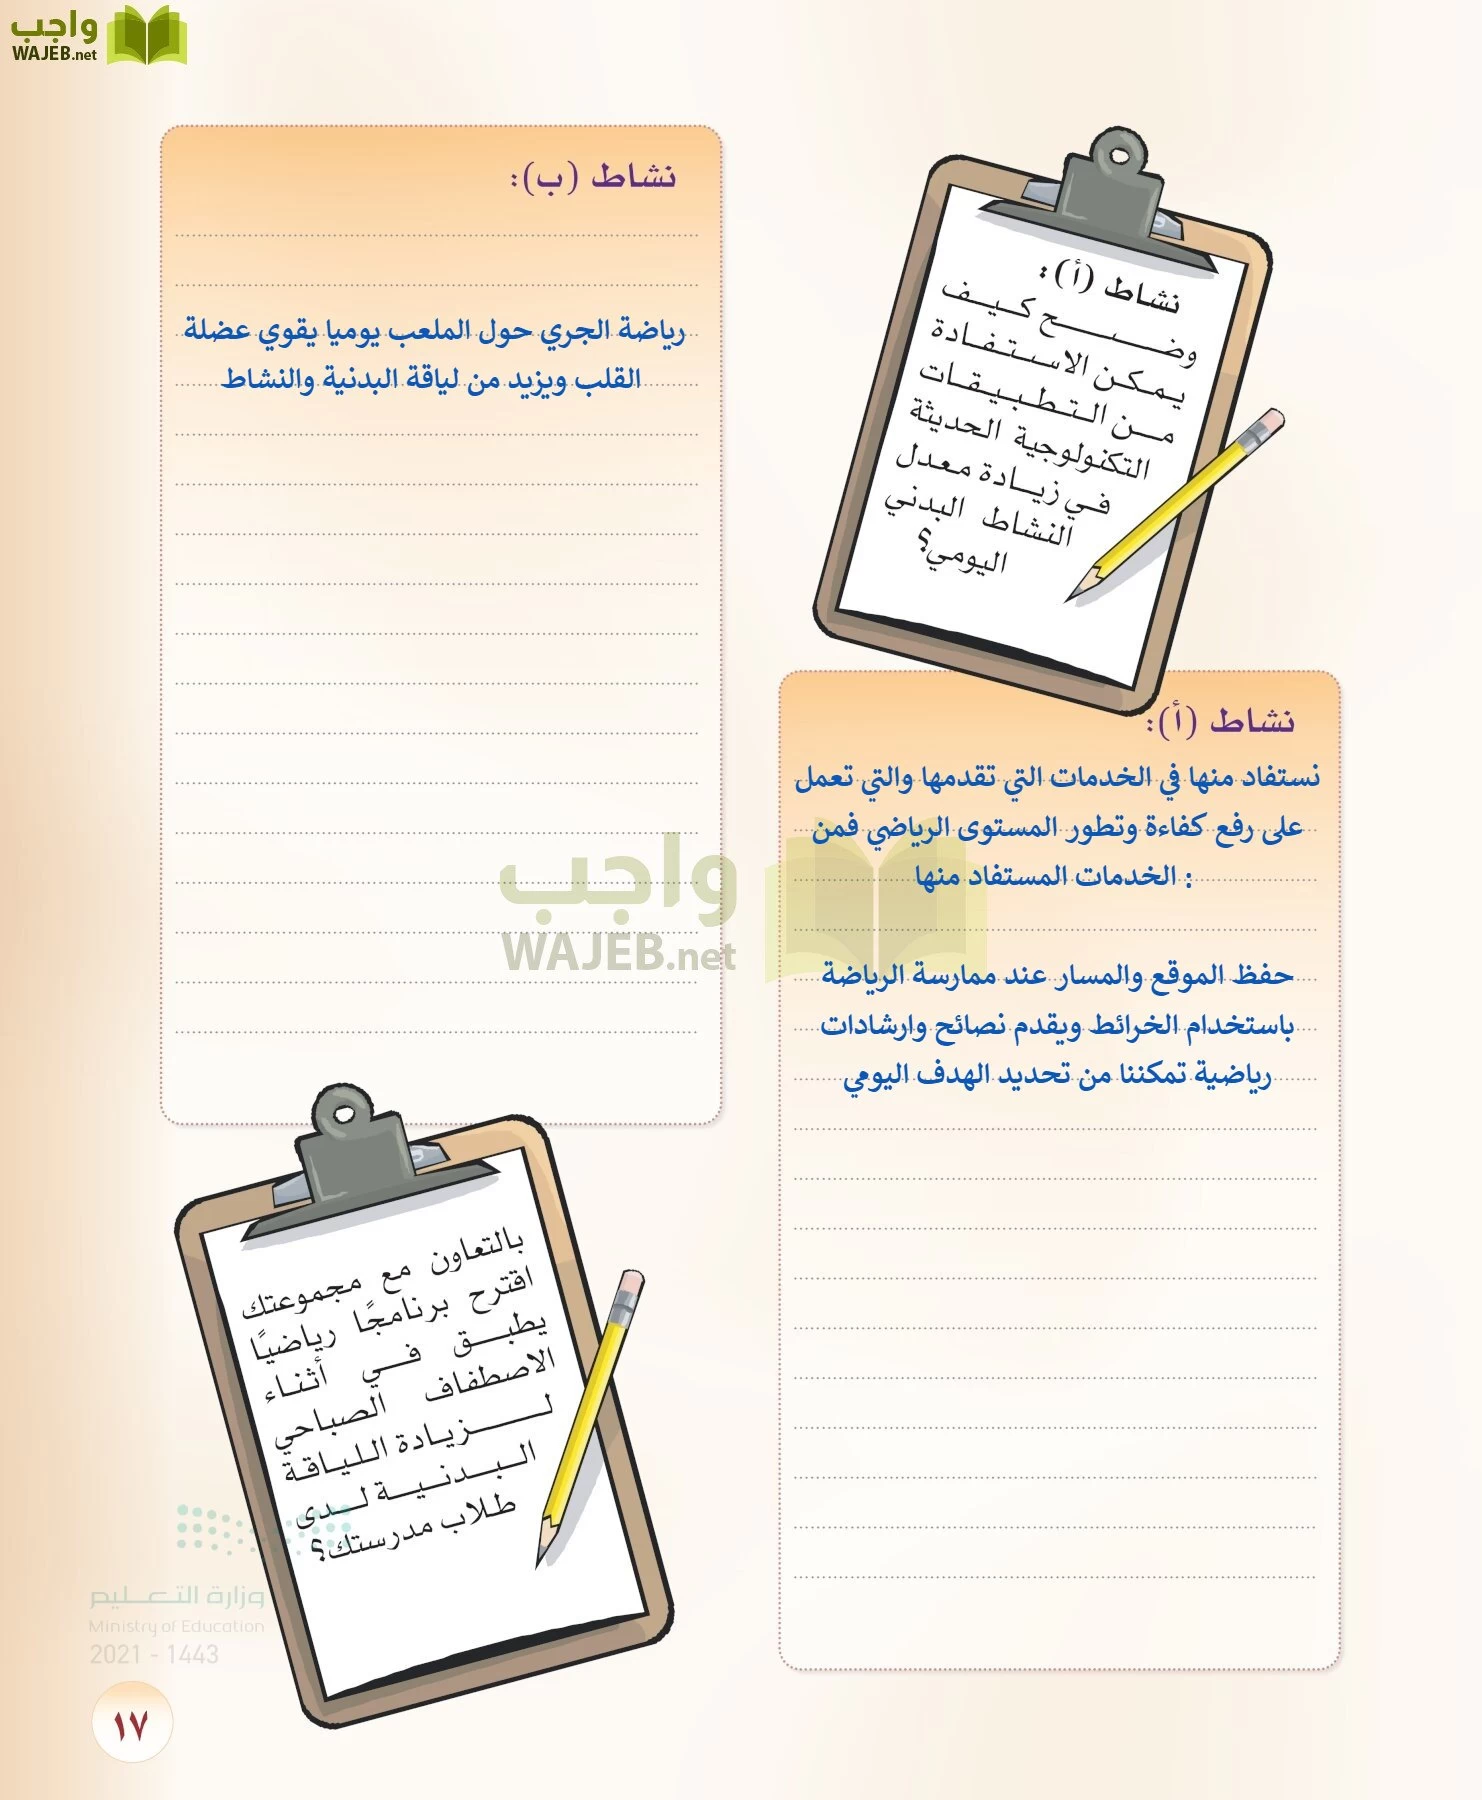 واجب
WAJEB.net
نشاط (أ):
وضـــــح كـيـف
يـمـكـن الاسـتـفـادة
مــن الـتـطـبـيـقـات
التكنولوجية الحديثة
فـي زيــادة معـدل
النشاط البدني
اليومي؟
نشاط (أ):
نستفاد منها في الخدمات التي تقدمها والتي تعمل
على رفع كفاءة وتطور المستوى الرياضي فمن
الخدمات المستفاد منها :
حفظ الموقع والمسار عند ممارسة الرياضة
باستخدام الخرائط ويقدم نصائح وارشادات
رياضية تمكننا من تحديد الهدف اليومي
نشاط (ب):
رياضة الجري حول الملعب يوميا يقوي عضلة
القلب ويزيد من لياقة البدنية والنشاط
واجب
WAJEB.net
بالتعاون مع مجموعتك
اقترح برنامجًا رياضيًا
يطبـــق فـــي أثنـاء
الاصطفاف الصباحي
لـــــزيـادة اللـيـاقـة
الـــبـــدنـيـــة لـــدى
طـلاب مدرستك؟
وزارة التعـليم
Ministry of Education
2021 - 1443
١٧